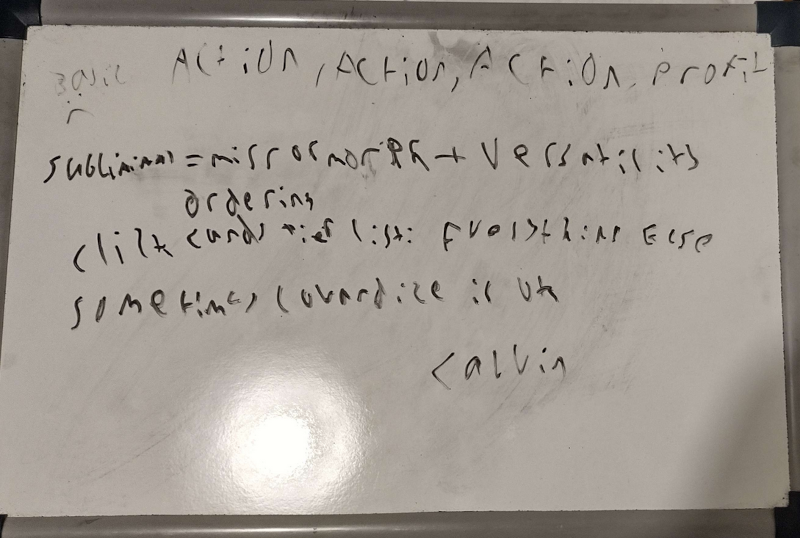 Basic Action, Action, Action, Profit
subliminal = mirrormorph + Versatility
ordering
click cards tier list: Everything Else
sometimes cowardice is ok
Calvin